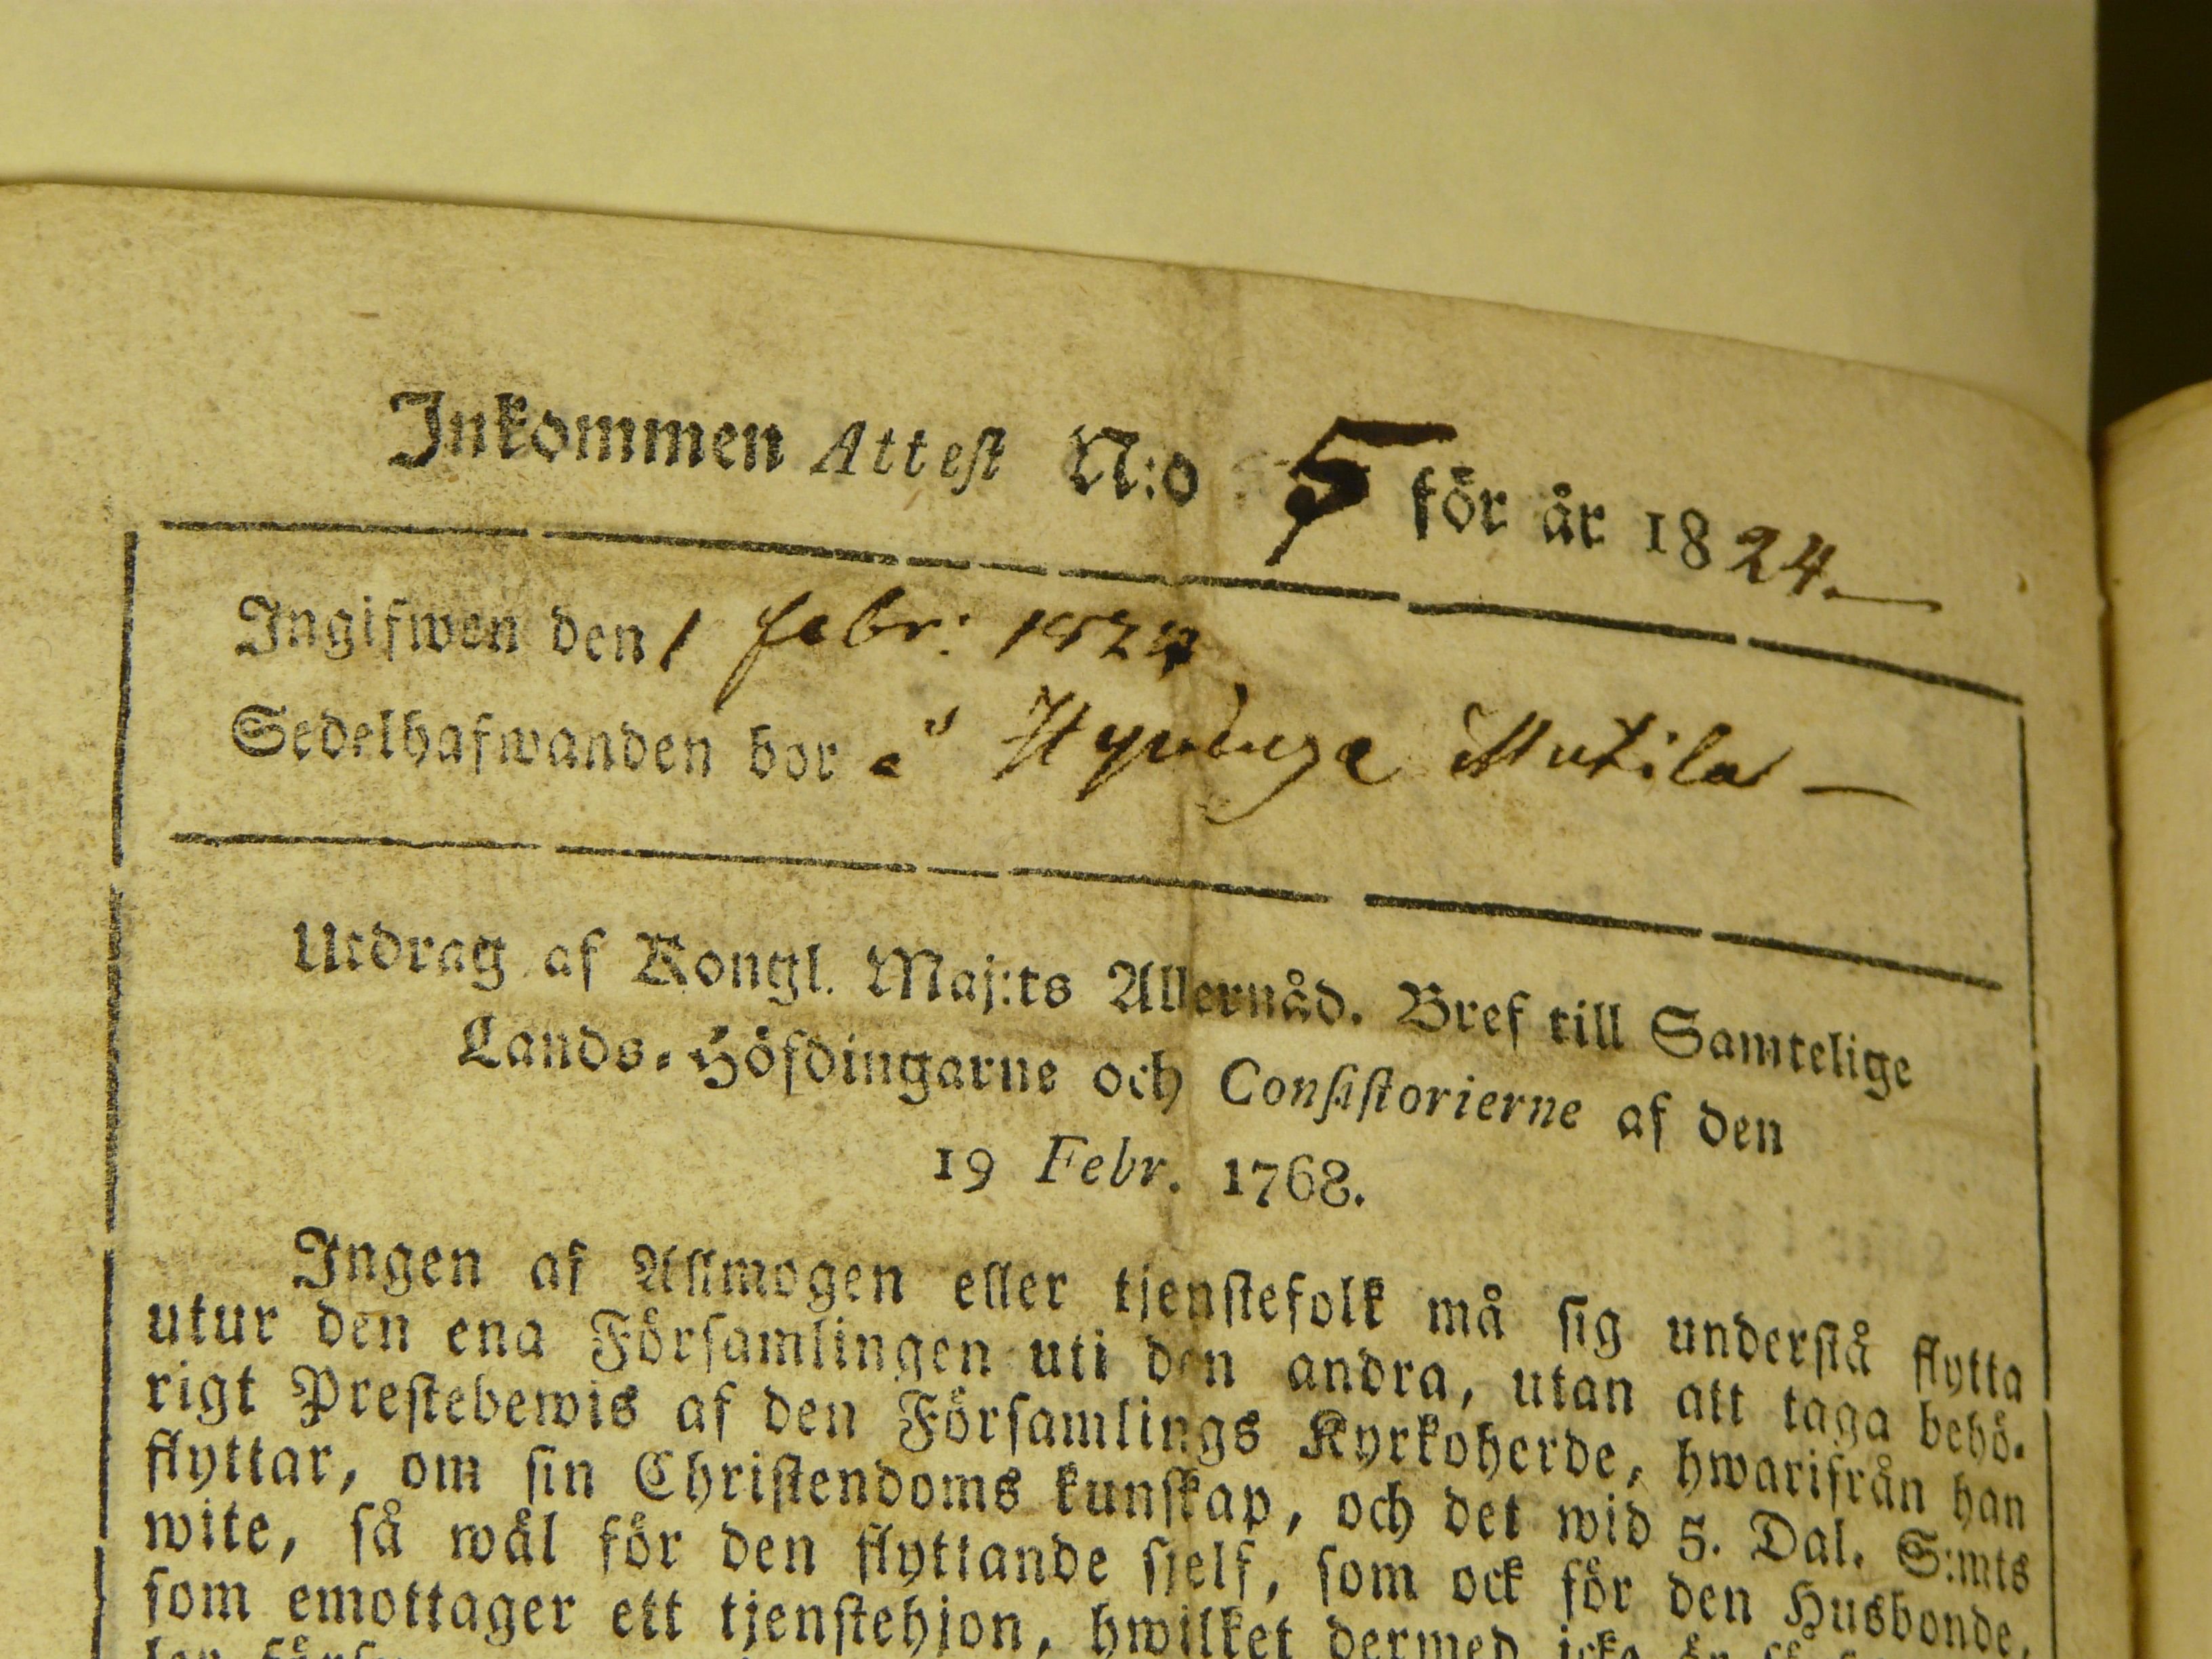 Inkommen Attest N:o 5 för år 1824.
Ingifwen den 1 febr: 1824
Sedelhafwanden bor å Mutila
Utdrag af Kongl. Maj:ts Allernåd. Bref till Samtelige
Lands-Höfdingarne och Consistorierne af den
19 Febr. 1768.
Ingen af Allmogen eller tjenstefolk må sig understå flytta
utur den ena Församlingen uti den andra, utan att taga behö-
rigt Prestebewis af den Församlings Kyrkoherde, hwarifrån han
flyttar, om sin Christendoms kunskap, och det wid 5. Dal. S:mts
wite, så wäl för den flyttande sjelf, som ock för den Husbonde,
som emottager ett tjenstehjon, hwilket dermed icke är